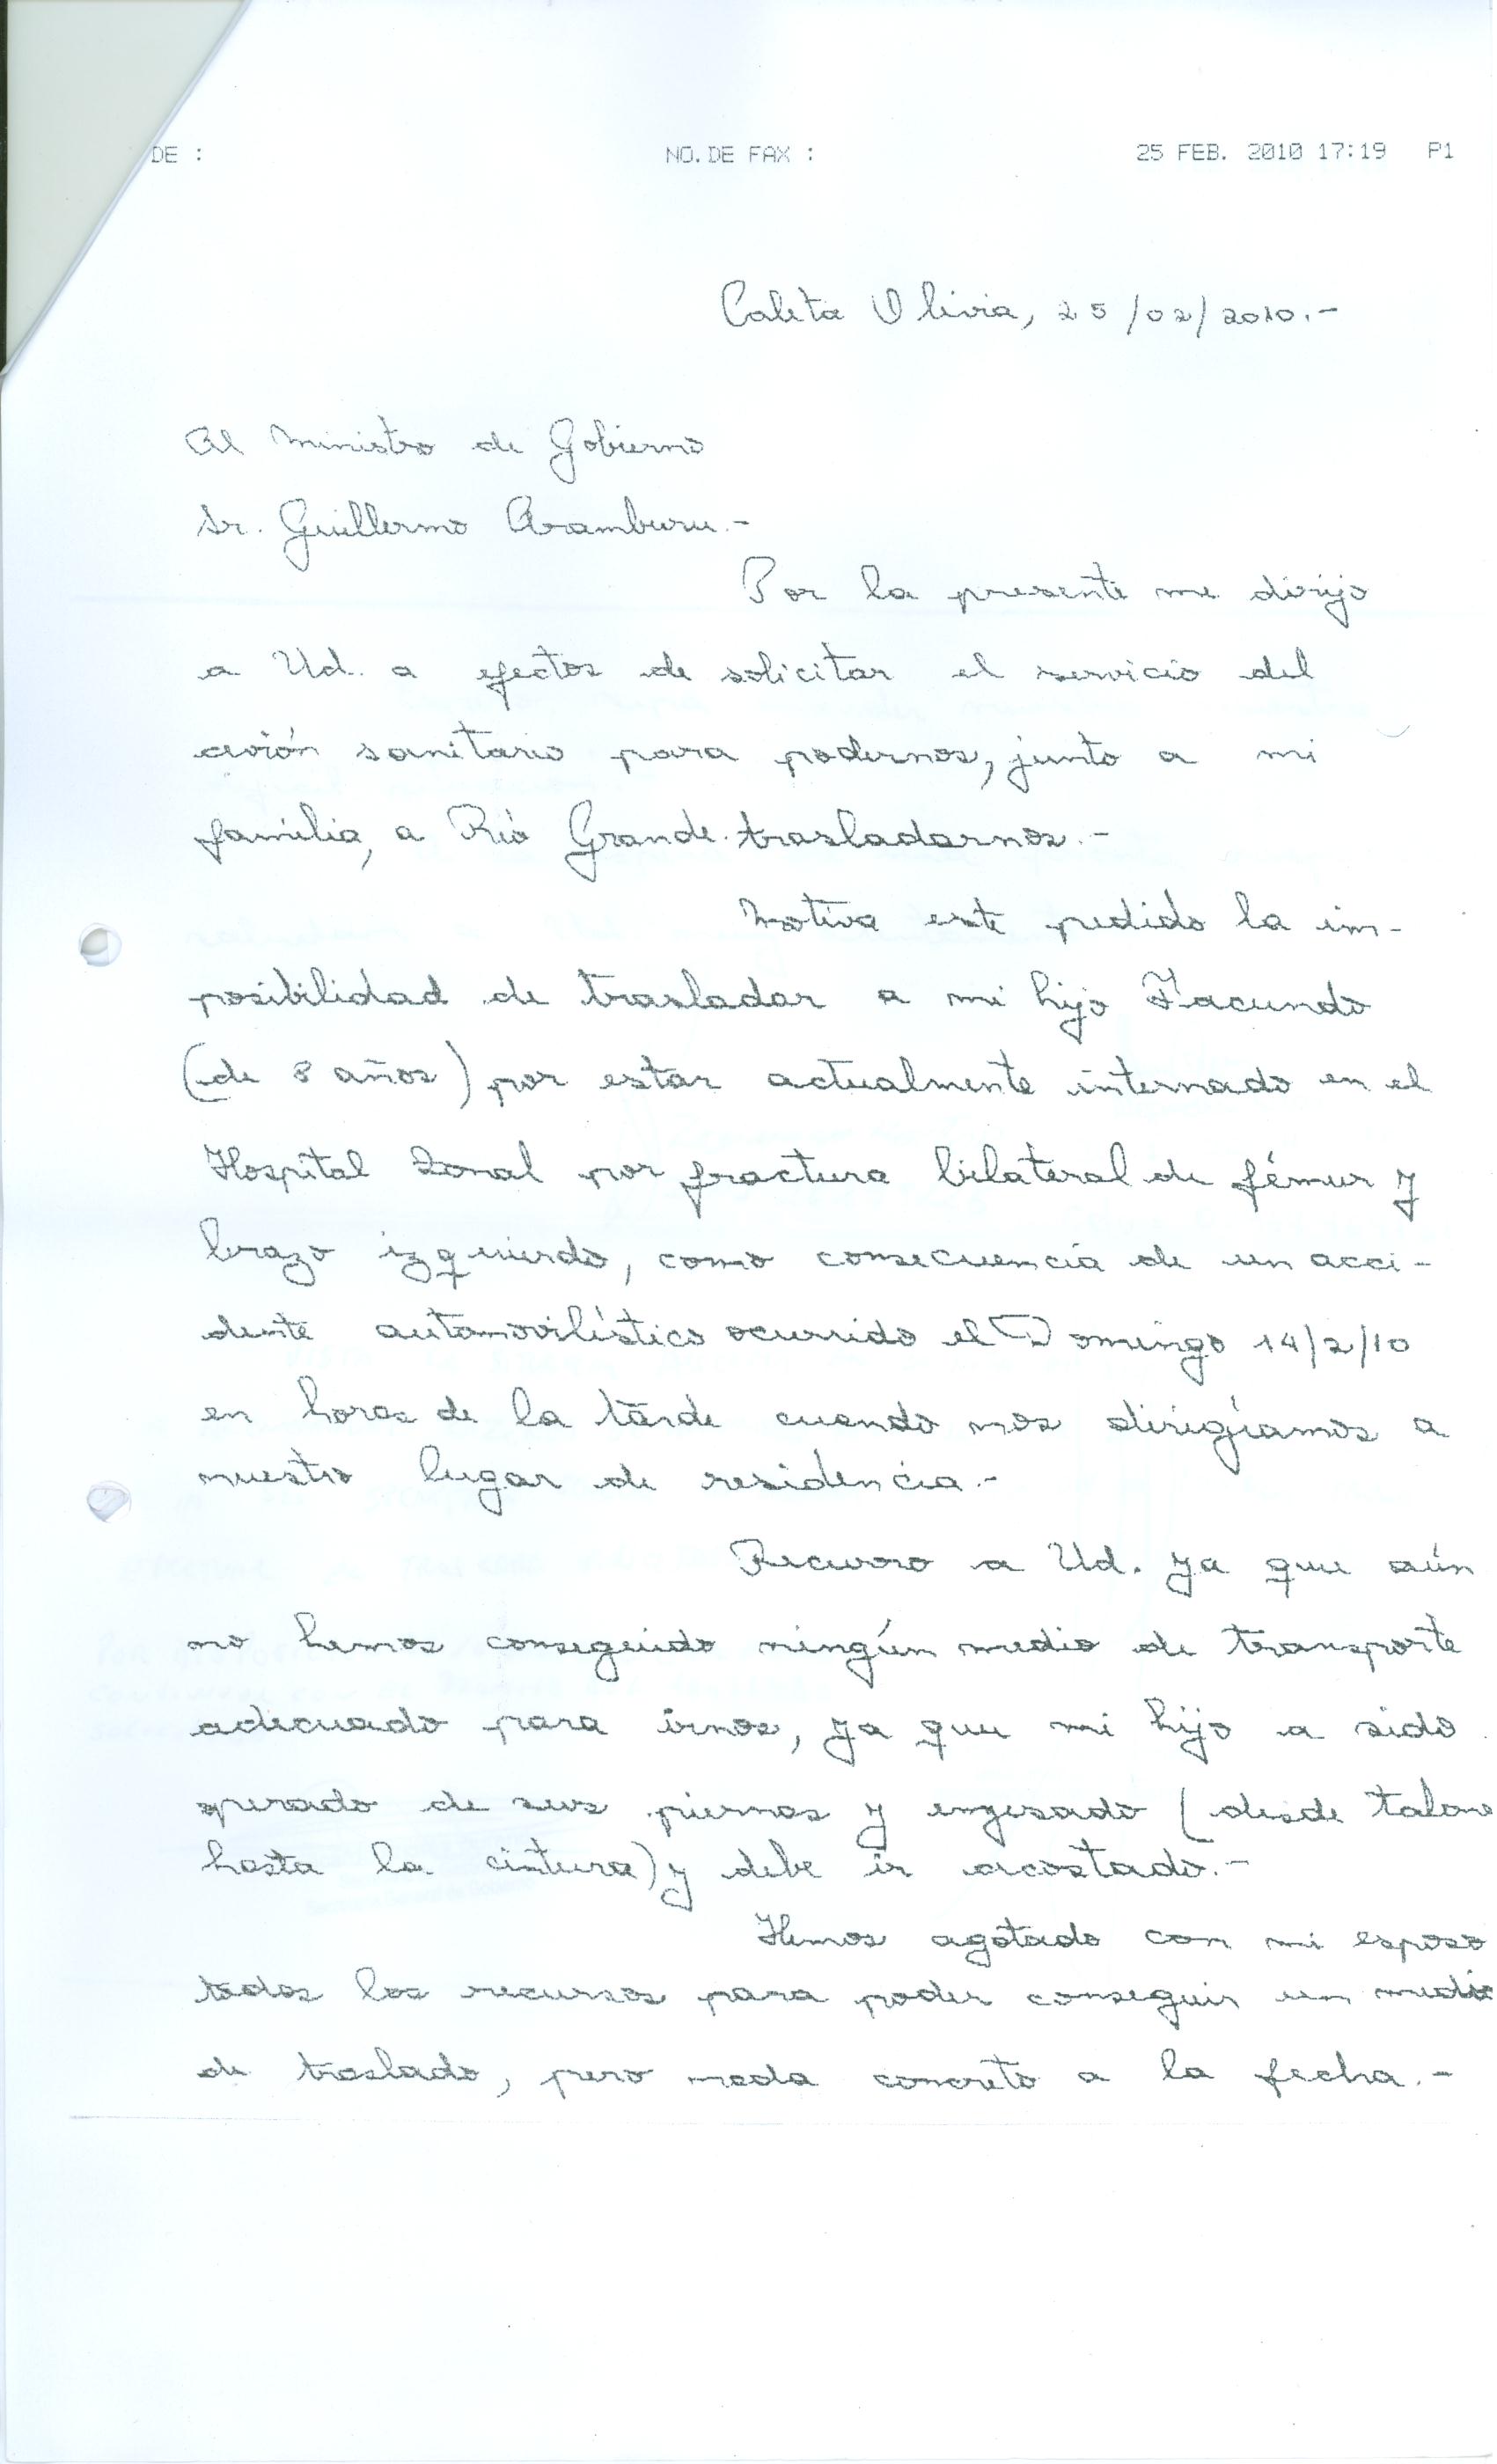 DE :    NO. DE FAX :    25 FEB. 2010 17:19    P1
Caleta Olivia, 25/02/2010.-
Al Ministro de Gobierno
Sr. Guillermo Aramburu.-
Por la presente me dirijo
a Ud. a efectos de solicitar el servicio del
avión sanitario para podernos, junto a mi
familia, a Río Grande trasladarnos.-
Motiva este pedido la im-
posibilidad de trasladar a mi hijo Facundo
(de 8 años) por estar actualmente internado en el
Hospital Zonal por fractura bilateral de fémur y
brazo izquierdo, como consecuencia de un acci-
dente automovilístico ocurrido el Domingo 14/2/10
en horas de la tarde cuando nos dirigíamos a
nuestro lugar de residencia.-
Recurro a Ud. ya que aún
no hemos conseguido ningún medio de transporte
adecuado para irnos, ya que mi hijo a sido
operado de sus piernas y enyesado (desde talone
hasta la cintura) y debe ir acostado.-
Hemos agotado con mi esposo
todos los recursos para poder conseguir un medio
de traslado, pero nada concreto a la fecha.-